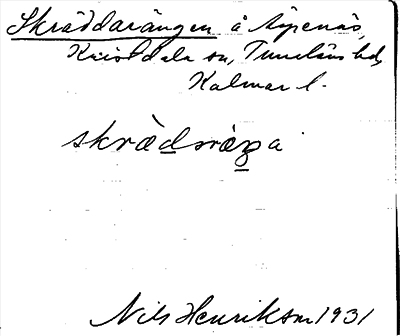 Skräddarängen å Aspenäs,
Kristdala sn, Tunaläns hd,
Kalmar l.
skrädaräŋa
Nils Henrikson 1931